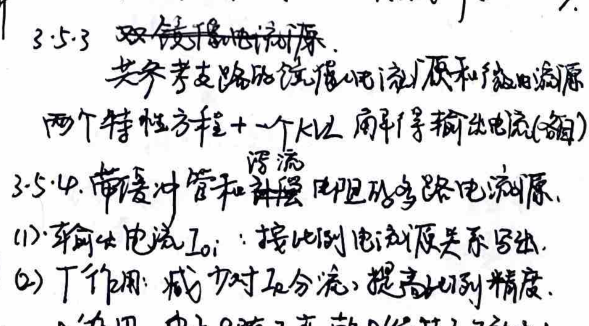 3.5.3 双镜像电流源.
共参考支路的镜像电流源和微电流源
两个特性方程+一个KVL 解得输出电流(各自)
3.5.4. 带缓冲管和泄流电阻的多路电流源.
(1) 输出电流Ioi：按比例电流源关系写出.
(2) T作用: 减少对IR分流, 提高比例精度.